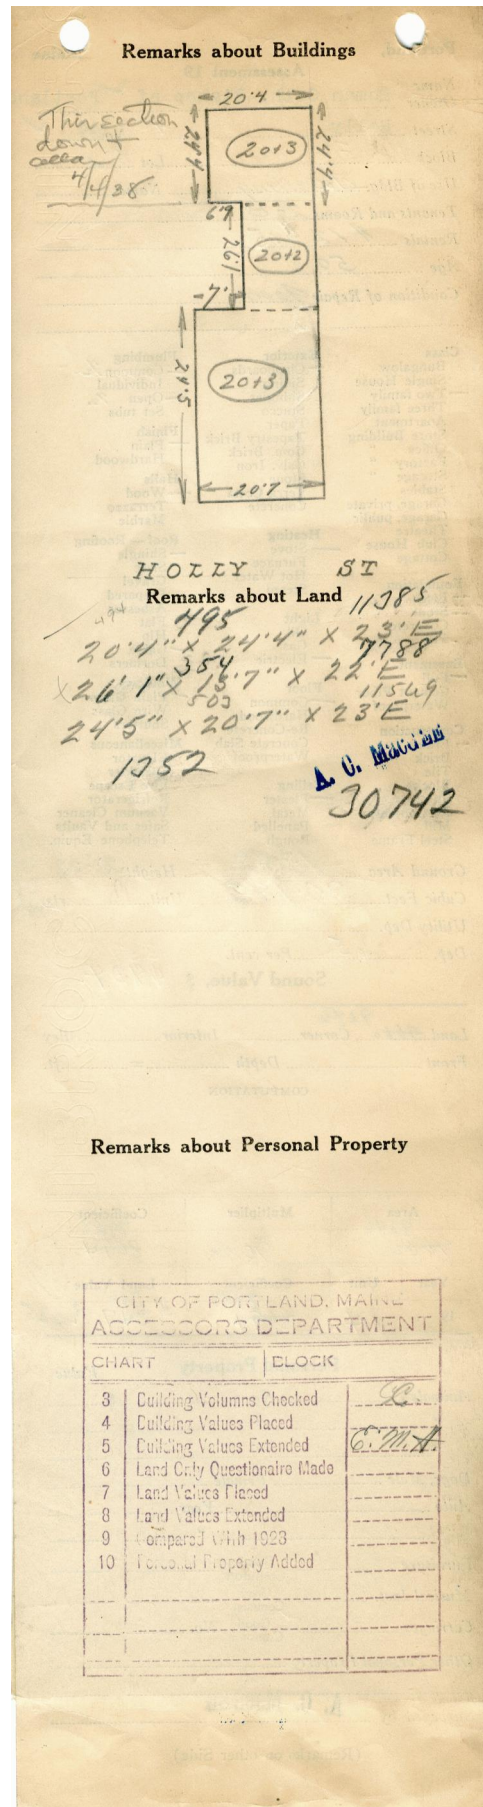 Remarks about Buildings
20'4
This section
down +
cellar
4/4/38
24'4
20+3
24'4
6'9
26'1
20+2
7'
24'5
20+3
20'7
HOLLY ST
Remarks about Land
494
495
11385
20'4" X 24'4" X 23'E
354
7788
X 26'1" X 13'7" X 22'E
503
11549
24'5" X 20'7" X 23'E
1352
30742
Remarks about Personal Property
CITY OF PORTLAND, MAINE
ASSESSORS DEPARTMENT
CHART BLOCK
3 Building Volumns Checked
4 Building Values Placed
5 Building Values Extended E.M.H.
6 Land Only Questionaire Made
7 Land Values Placed
8 Land Values Extended
9 Compared With 1923
10 Personal Property Added